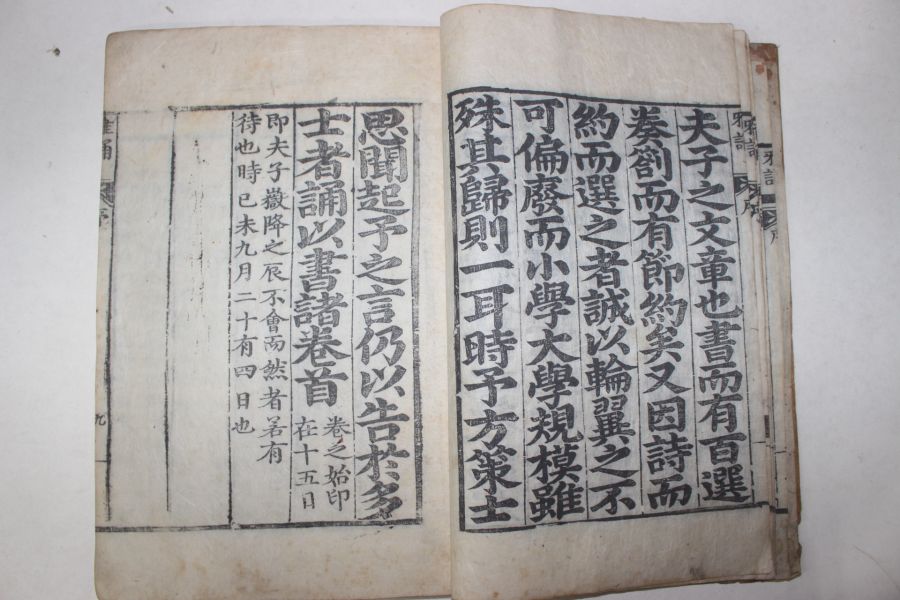 夫子之文章也書而有百選
奏劄而有節約矣又因詩而
約而選之者誠以輪翼之不
可偏廢而小學大學規模雖
殊其歸則一耳時予方策士
思聞起予之言仍以告於多
士者誦以書諸卷首
卷之始印
在十五日
即夫子嶽降之辰不會而然者若有
待也時己未九月二十有四日也
雅誦
序
九